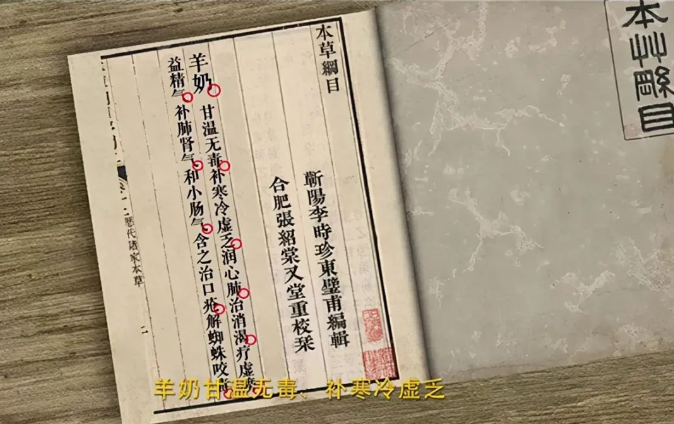 本草綱目
蘄陽李時珍東璧甫編輯
合肥張紹棠又堂重校栞
羊奶
甘温无毒补寒冷虚乏润心肺治消渴疗虚
益精气补肺肾气和小肠气含之治口疮解蜘蛛咬
歷代諸家本草
二
本艸縣目
羊奶甘温无毒、补寒冷虚乏